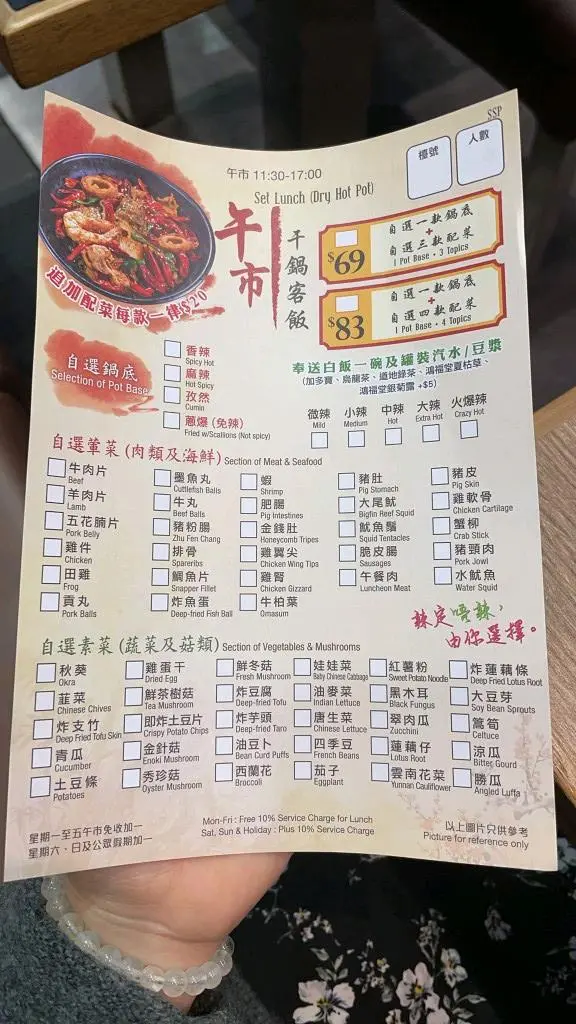 SSP
檯號
人數
午市 11:30-17:00
Set Lunch (Dry Hot Pot)
午市
干鍋客飯
追加配菜每款一律$20
$69
自選一款鍋底
+
自選三款配菜
1 Pot Base • 3 Topics
$83
自選一款鍋底
+
自選四款配菜
1 Pot Base • 4 Topics
自選鍋底
Selection of Pot Base
香辣
Spicy Hot
麻辣
Hot Spicy
孜然
Cumin
蔥爆 (免辣)
Fried w/Scallions (Not spicy)
奉送白飯一碗及罐裝汽水/豆漿
(加多寶、烏龍茶、道地綠茶、鴻福堂夏枯草、
鴻福堂銀菊露 +$5)
微辣 小辣 中辣 大辣 火爆辣
Mild Medium Hot Extra Hot Crazy Hot
自選葷菜 (肉類及海鮮) Section of Meat & Seafood
牛肉片
Beef
羊肉片
Lamb
五花腩片
Pork Belly
雞件
Chicken
田雞
Frog
貢丸
Pork Balls
墨魚丸
Cuttlefish Balls
牛丸
Beef Balls
豬粉腸
Zhu Fen Chang
排骨
Spareribs
鯛魚片
Snapper Fillet
炸魚蛋
Deep-fried Fish Ball
蝦
Shrimp
肥腸
Pig Intestines
金錢肚
Honeycomb Tripes
雞翼尖
Chicken Wing Tips
雞腎
Chicken Gizzard
牛柏葉
Omasum
豬肚
Pig Stomach
大尾魷
Bigfin Reef Squid
魷魚鬚
Squid Tentacles
脆皮腸
Sausages
午餐肉
Luncheon Meat
豬皮
Pig Skin
雞軟骨
Chicken Cartilage
蟹柳
Crab Stick
豬頸肉
Pork Jowl
水魷魚
Water Squid
辣定唔辣，
由你選擇。
自選素菜 (蔬菜及菇類) Section of Vegetables & Mushrooms
秋葵
Okra
韮菜
Chinese Chives
炸支竹
Deep Fried Tofu Skin
青瓜
Cucumber
土豆條
Potatoes
雞蛋干
Dried Egg
鮮茶樹菇
Tea Mushroom
即炸土豆片
Crispy Potato Chips
金針菇
Enoki Mushroom
秀珍菇
Oyster Mushroom
鮮冬菇
Fresh Mushroom
炸豆腐
Deep-fried Tofu
炸芋頭
Deep-fried Taro
油豆卜
Bean Curd Puffs
西蘭花
Broccoli
娃娃菜
Baby Chinese Cabbage
油麥菜
Indian Lettuce
唐生菜
Chinese Lettuce
四季豆
French Beans
茄子
Eggplant
紅薯粉
Sweet Potato Noodle
黑木耳
Black Fungus
翠肉瓜
Zucchini
蓮藕仔
Lotus Root
雲南花菜
Yunnan Cauliflower
炸蓮藕條
Deep Fried Lotus Root
大豆芽
Soy Bean Sprouts
萵筍
Celtuce
涼瓜
Bitter Gourd
勝瓜
Angled Luffa
星期一至五午市免收加一
星期六、日及公眾假期加一
Mon-Fri : Free 10% Service Charge for Lunch
Sat, Sun & Holiday : Plus 10% Service Charge
以上圖片只供參考
Picture for reference only